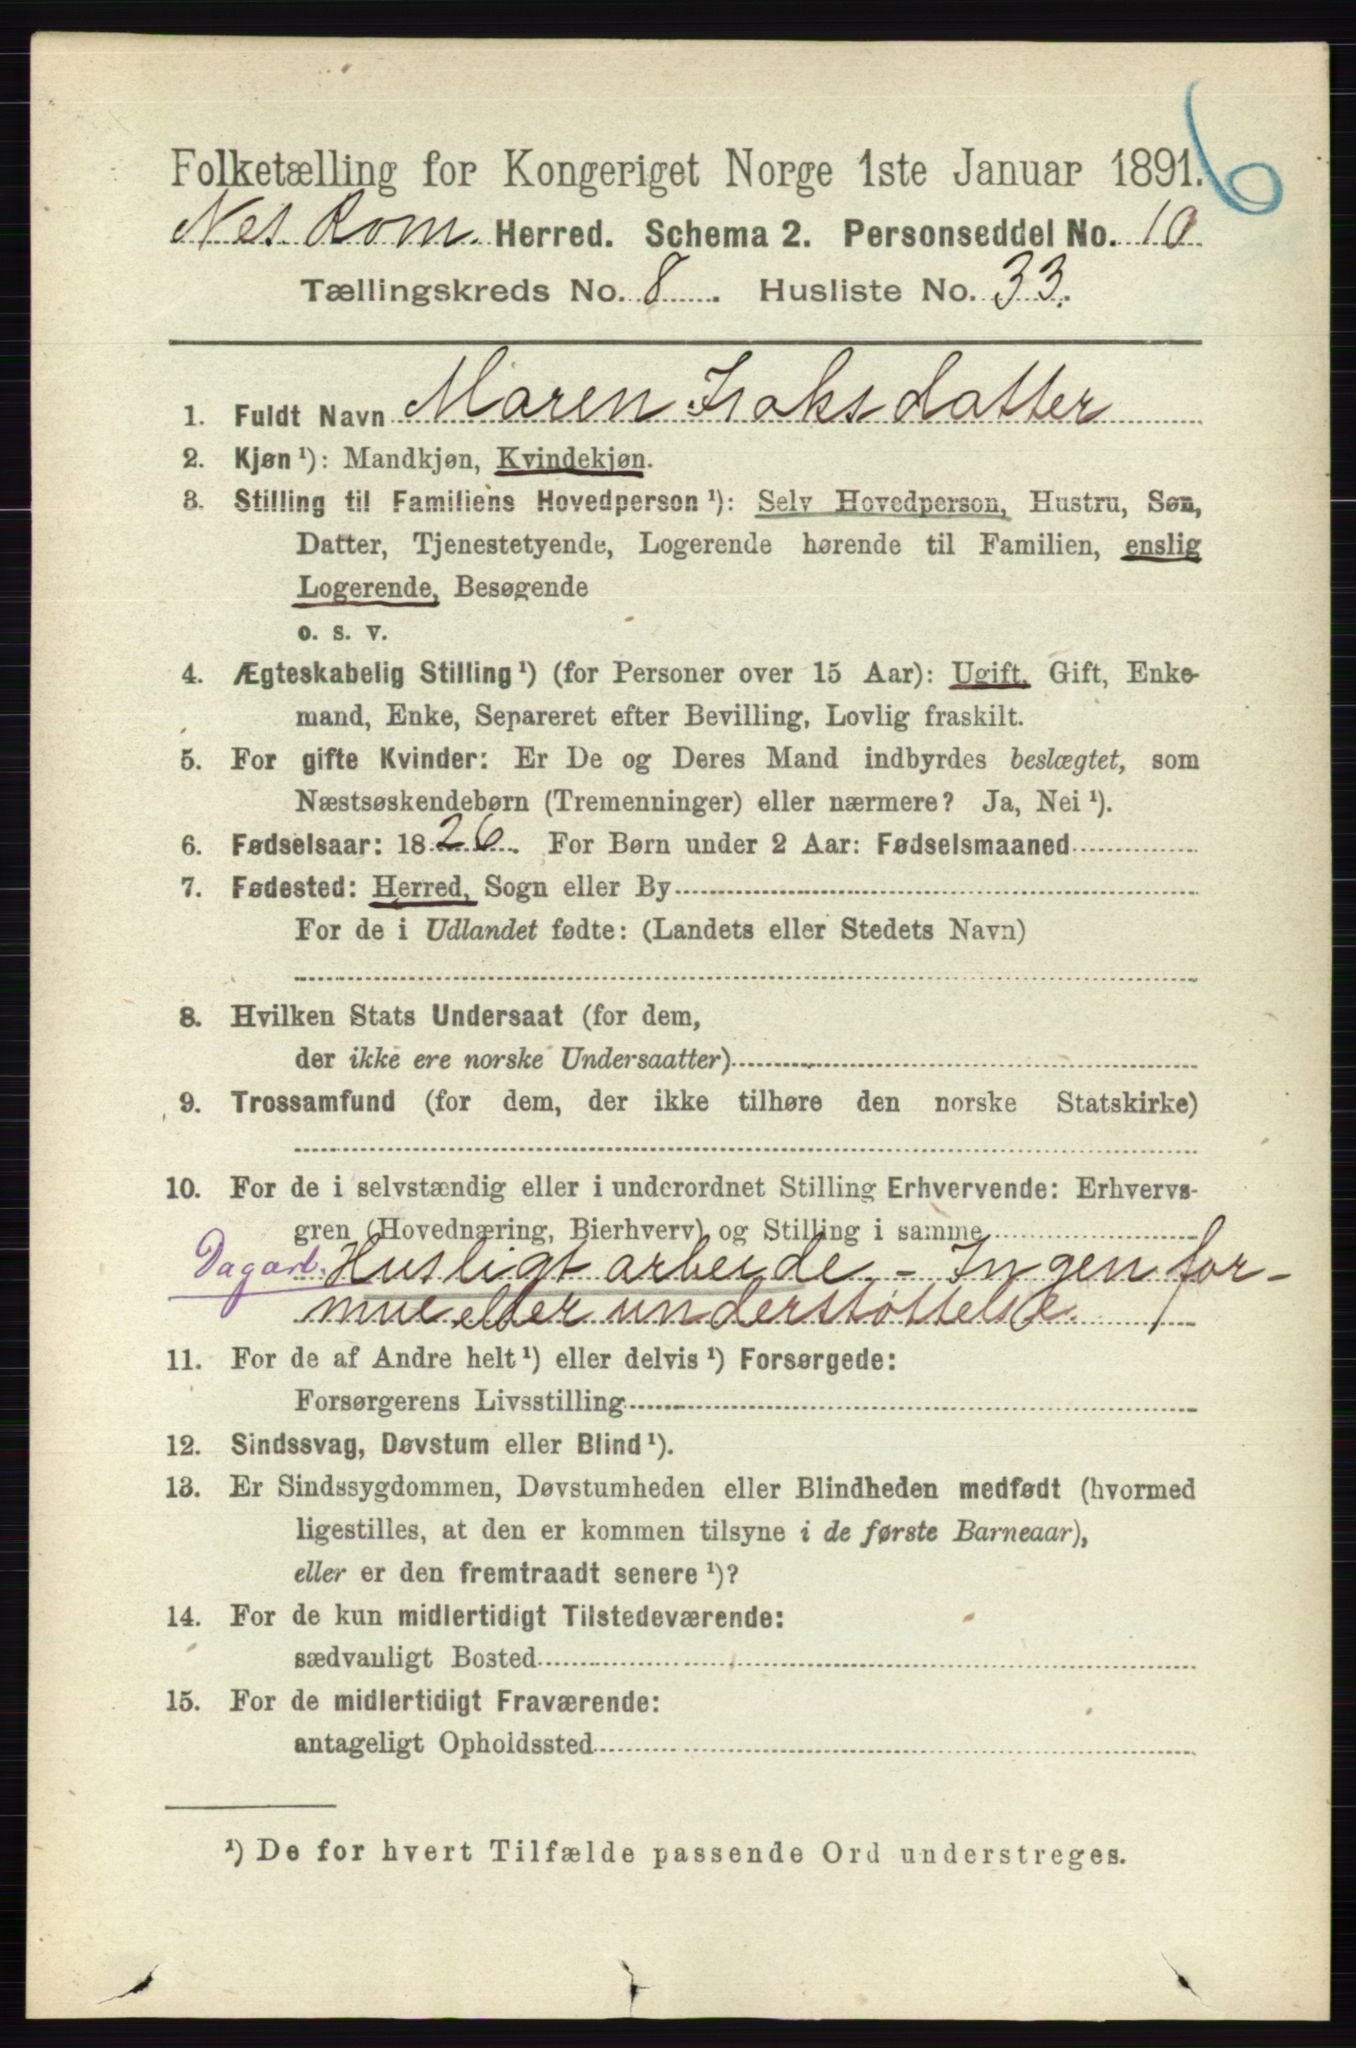 6
Folketælling for Kongeriget Norge 1ste Januar 1891.
Nes Rom. Herred. Schema 2. Personseddel No. 10
Tællingskreds No. 8. Husliste No. 33.
1. Fuldt Navn Maren Isaksdatter
2. Kjøn ¹): Mandkjøn, Kvindekjøn.
3. Stilling til Familiens Hovedperson ¹): Selv Hovedperson, Hustru, Søn,
Datter, Tjenestetyende, Logerende hørende til Familien, enslig
Logerende, Besøgende
o. s. v.
4. Ægteskabelig Stilling ¹) (for Personer over 15 Aar): Ugift, Gift, Enke-
mand, Enke, Separeret efter Bevilling, Lovlig fraskilt.
5. For gifte Kvinder: Er De og Deres Mand indbyrdes beslægtet, som
Næstsøskendebørn (Tremenninger) eller nærmere? Ja, Nei ¹).
6. Fødselsaar: 1826. For Børn under 2 Aar: Fødselsmaaned
7. Fødested: Herred, Sogn eller By
For de i Udlandet fødte: (Landets eller Stedets Navn)
8. Hvilken Stats Undersaat (for dem,
der ikke ere norske Undersaatter)
9. Trossamfund (for dem, der ikke tilhøre den norske Statskirke)
10. For de i selvstændig eller i underordnet Stilling Erhvervende: Erhvervs-
gren (Hovednæring, Bierhverv) og Stilling i samme
Dagarb. Husligt arbeide. - Ingen for-
mue eller understøttelse.
11. For de af Andre helt ¹) eller delvis ¹) Forsørgede:
Forsørgerens Livsstilling
12. Sindssvag, Døvstum eller Blind ¹).
13. Er Sindssygdommen, Døvstumheden eller Blindheden medfødt (hvormed
ligestilles, at den er kommen tilsyne i de første Barneaar),
eller er den fremtraadt senere ¹)?
14. For de kun midlertidigt Tilstedeværende:
sædvanligt Bosted
15. For de midlertidigt Fraværende:
antageligt Opholdssted
¹) De for hvert Tilfælde passende Ord understreges.